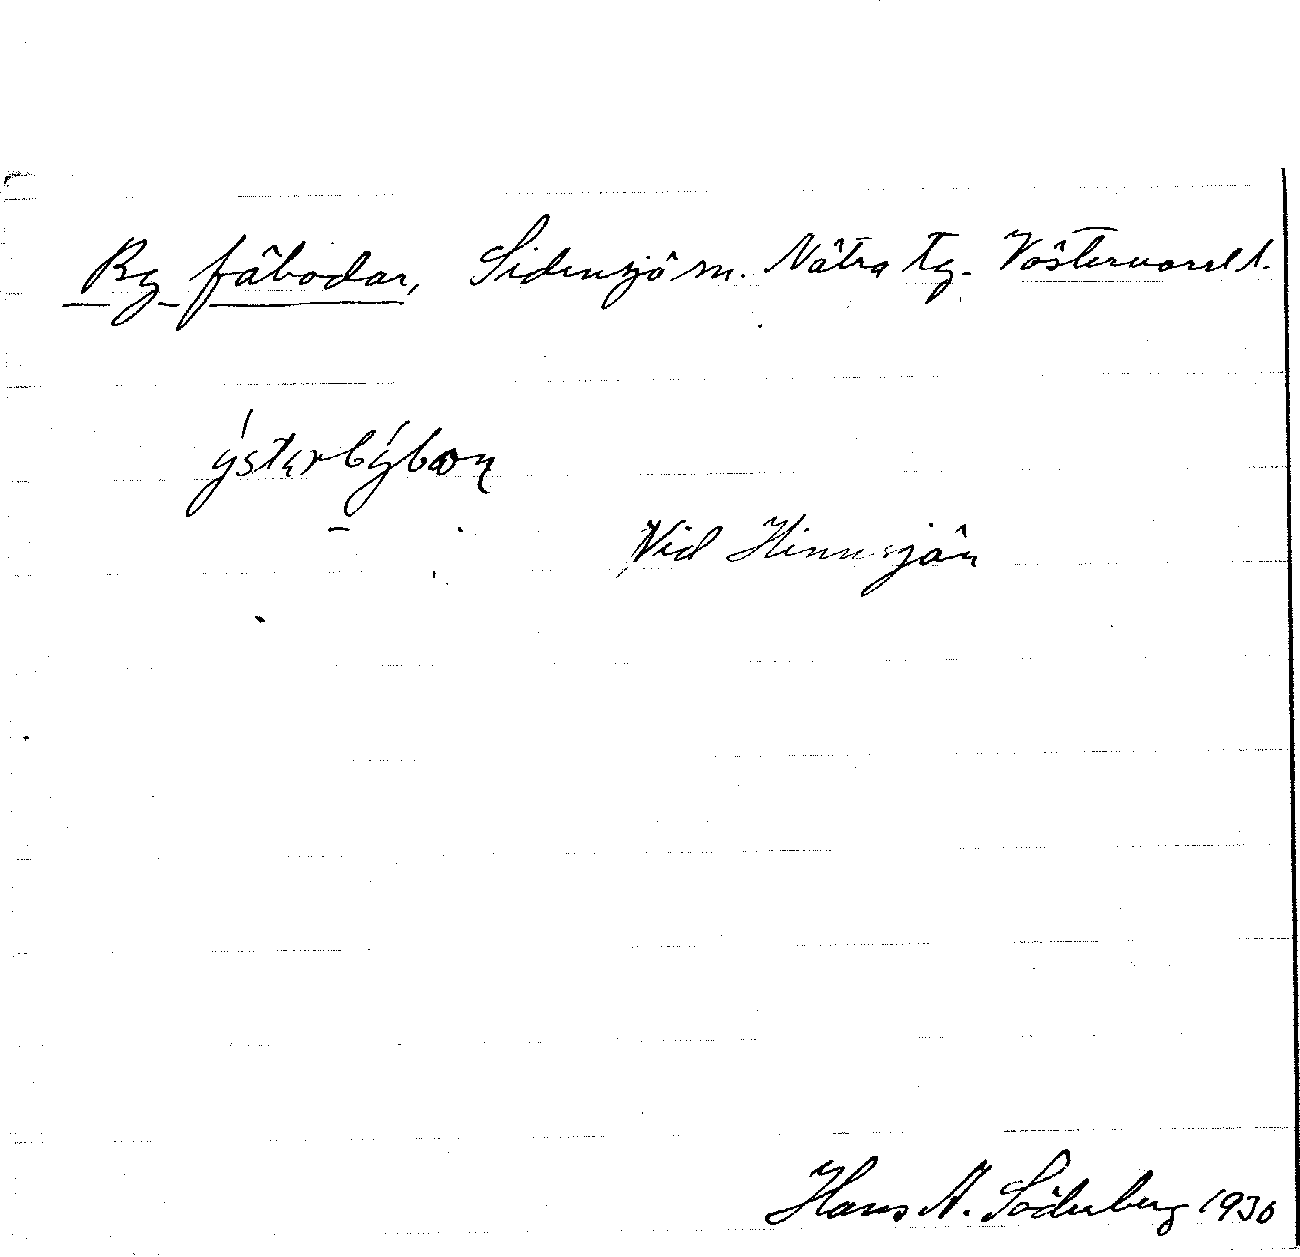 By fäbodar, Sidensjö sn. Nätra tg. Västernorrl l.
ýstərbýboɳ
Vid Hinnsjön
Hans A. Söderberg 1930